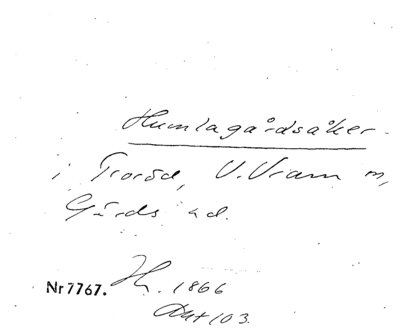 Humlagårdsåker
i Troröd, V. Vram m,
Gärds hd.
Nr 7767. Hs. 1866
Akt 103.